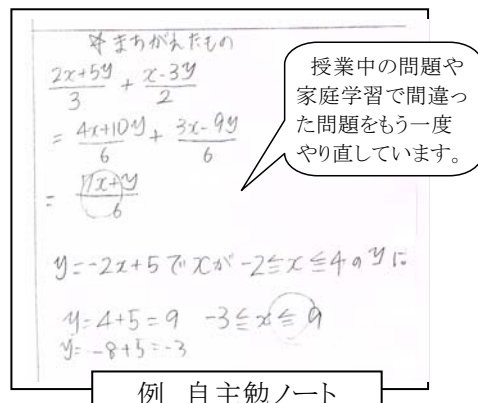 ※まちがえたもの
2x+5y/3 + x-3y/2
= 4x+10y/6 + 3x-9y/6
= 7x+y/6
y=-2x+5でxが-2≦x≦4のyに
y=4+5=9 -3≦x≦9
y=-8+5=-3
授業中の問題や
家庭学習で間違っ
た問題をもう一度
やり直しています。
例 自主勉ノート